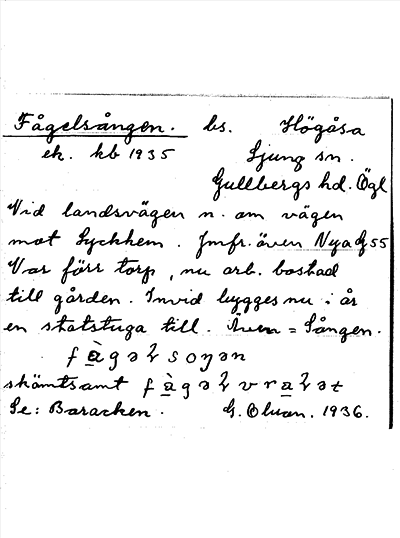 Fågelsången. bs. Högåsa
ek. kb 1935 Ljung sn.
Gullbergs hd. Ögl
Vid landsvägen n. om vägen
mot Lyckhem. Jmfr. även Nya Lj 55
Var förr torp, nu arb. bostad
till gården. Invid bygges nu i år
en statstuga till. Även = Sången.
skämtsamt
Se: Baracken. G. Olson. 1936.